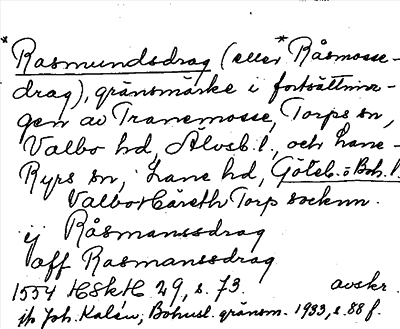 *Rasmundsdrag (eller *Råsmosse-
drag), gränsmärke i fortsättnin-
gen av Tranemosse, Torps sn,
Valbo hd, Älvsb. l., och Lane-
Ryrs sn, Lane hd, Göteb. o Boh. l.
Valbo Torp socknn.
ij Råsmanssdrag
off Rasmanssdrag
1554 HSkH 29, s. 73. avskr.
jfr Joh. Kalén, Bohusl. gränsm. 1933, s. 88 f.